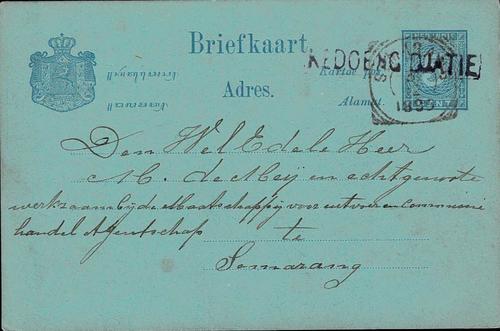 Briefkaart.
KEDOENGDJATIE
Kartoe pos.
Adres.
Alamat.
1890
Den Wel Edele Heer
M. de Meij en echtgenoote
werkzaam bij de Maatschappij voor uitvoer en Commissie
handel Agentschap te
Semarang